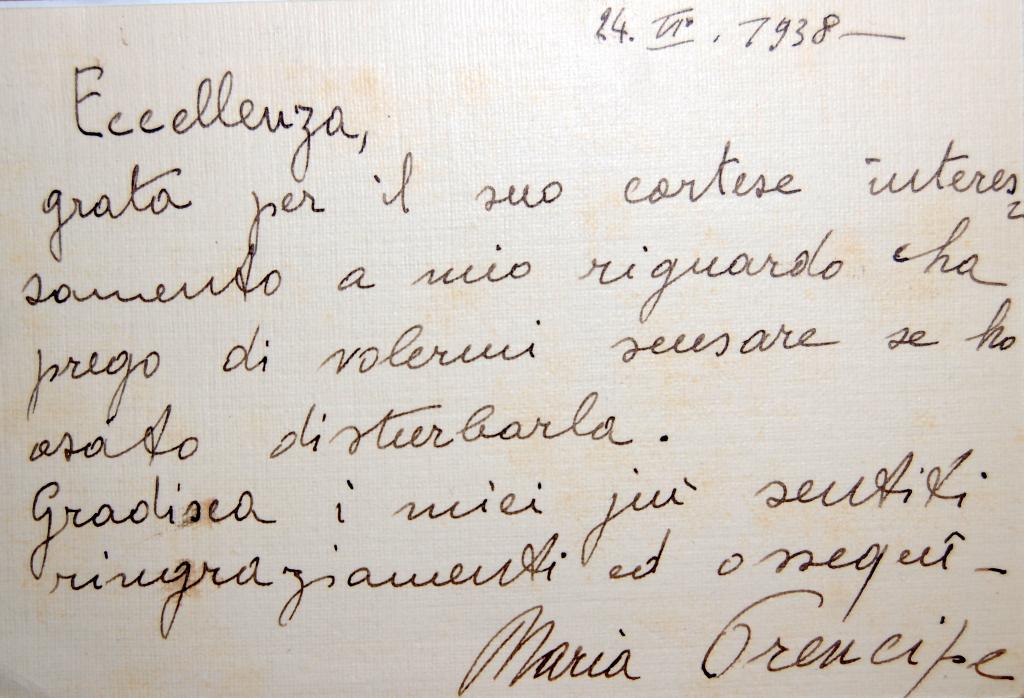 24. VI°. 1938 —
Eccellenza,
grata per il suo cortese interes=
samento a mio riguardo La
prego di volermi scusare se ho
osato disturbarla.
Gradisca i miei più sentiti
ringraziamenti ed ossequî —
Maria Prencipe